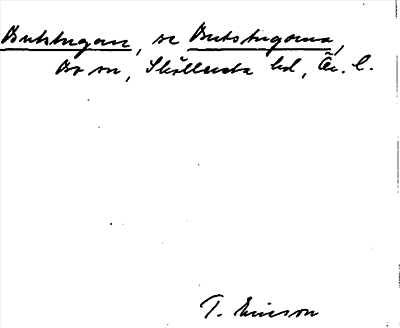 Butstugan, se Butstugorna,
Bo sn, Sköllersta hd, Ör. l.
T. Ericson